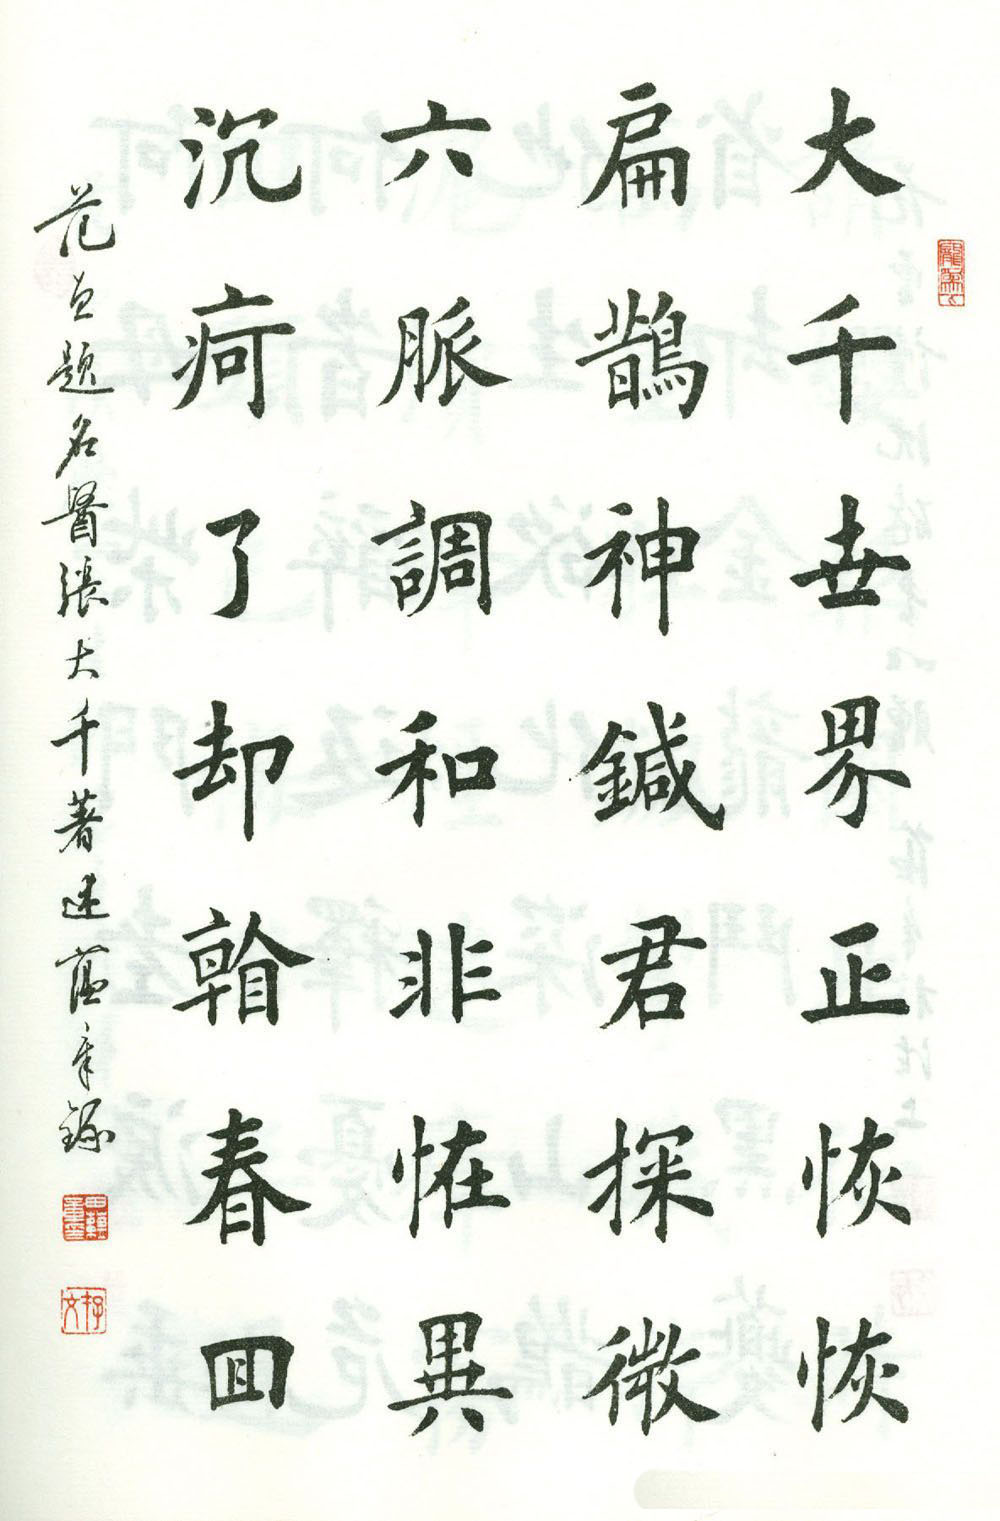 大千世界正恢恢
扁鵲神鍼君探微
六脈調和非恠異
沉疴了却春囬
范曾題名醫張大千著述蘊章録
田蘊章印